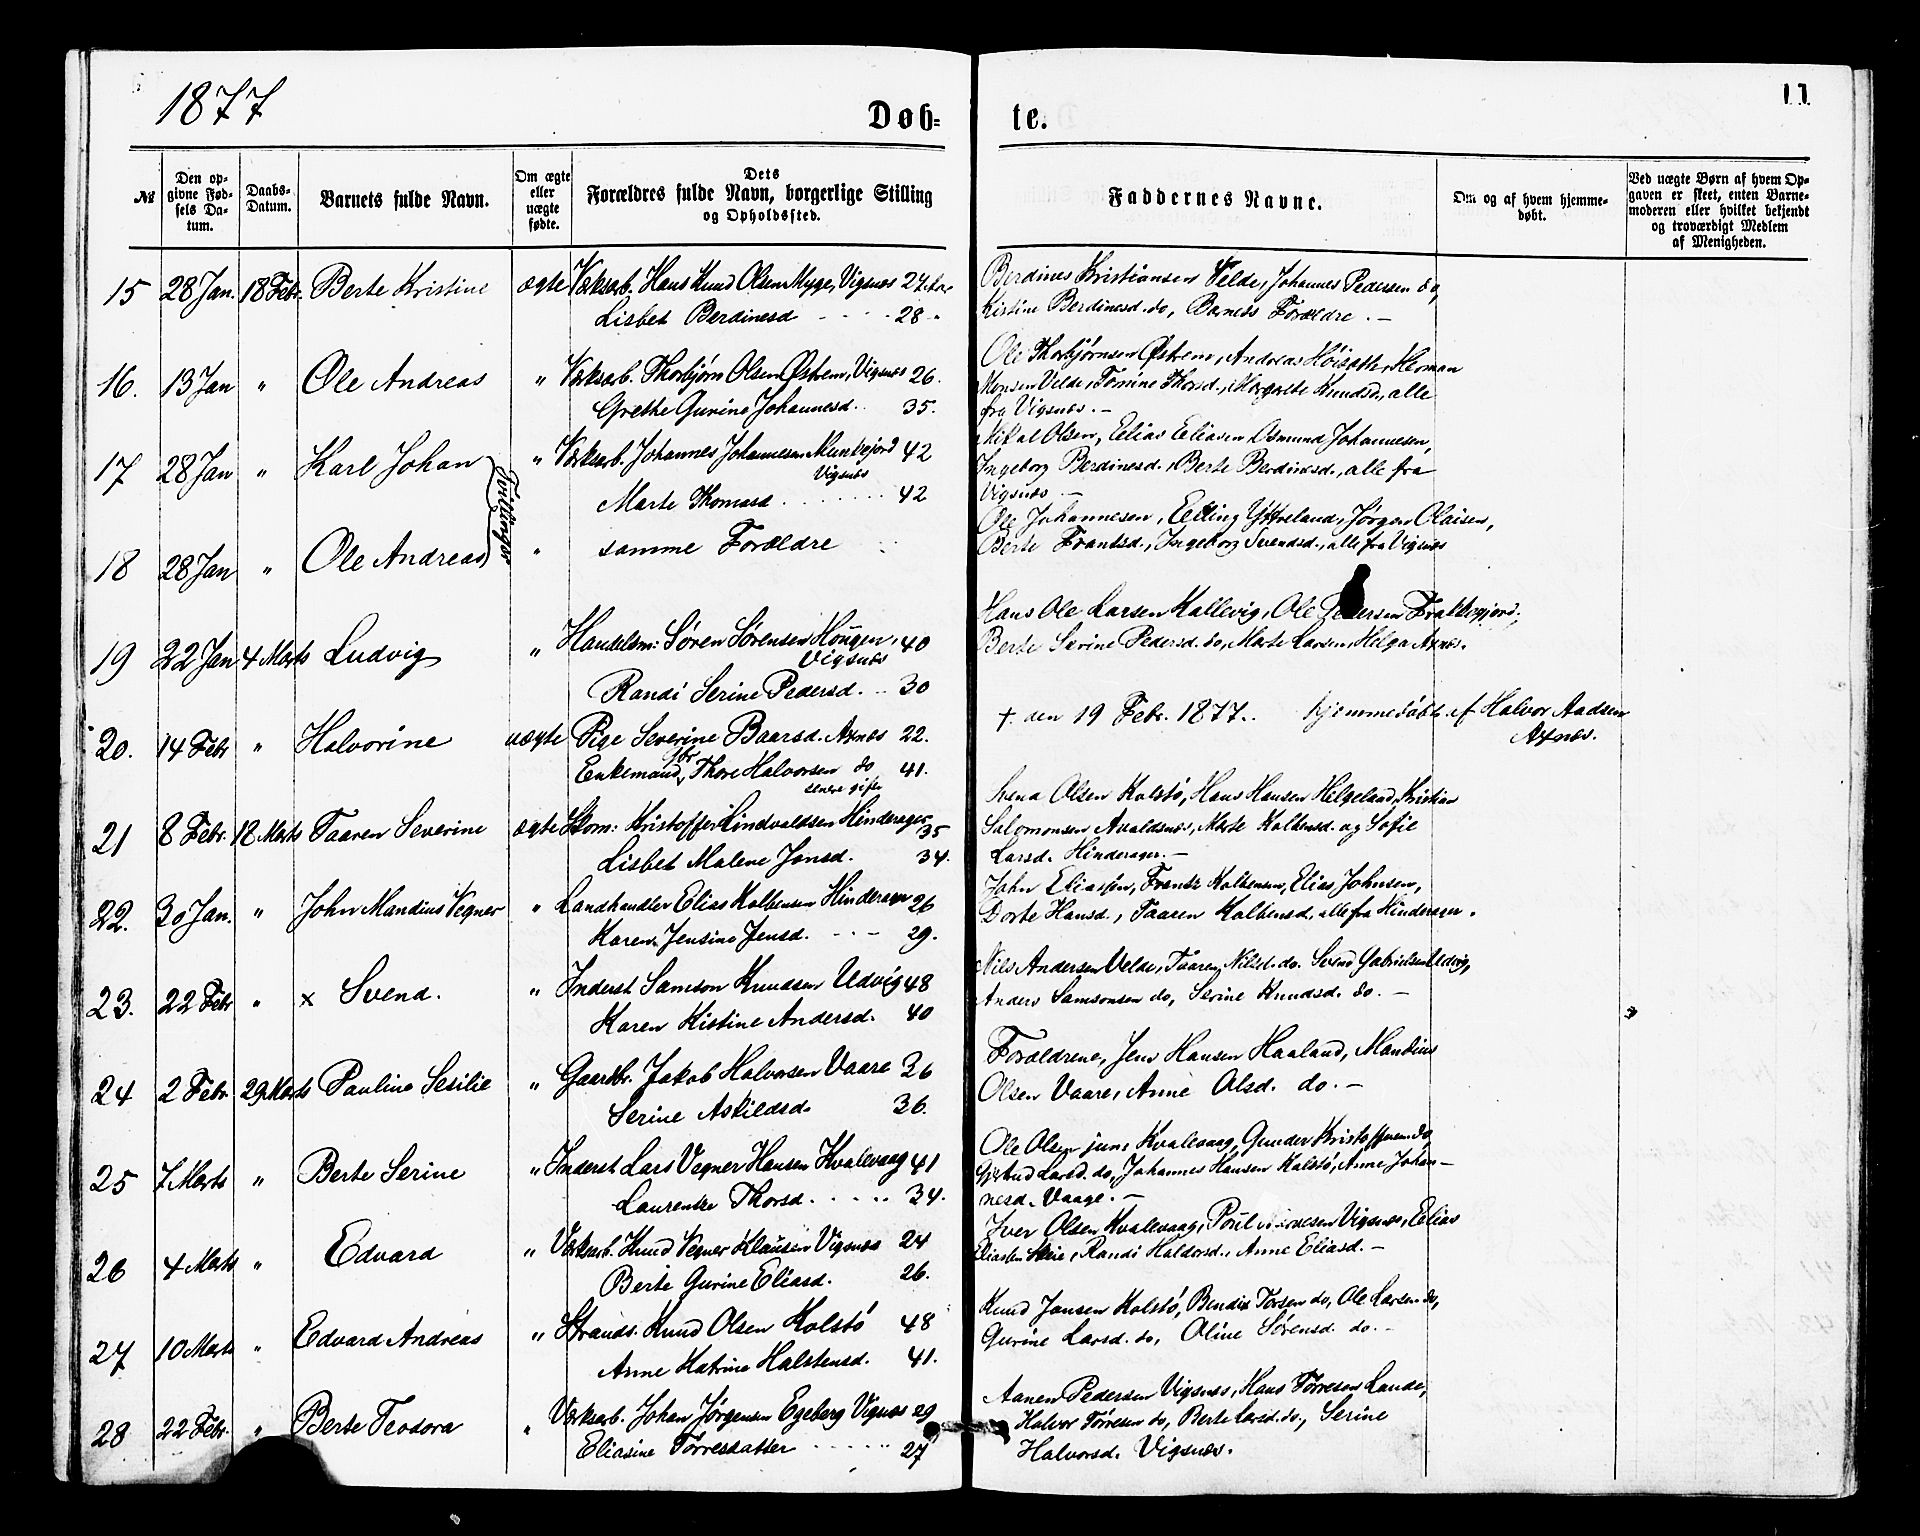 1877
Døb-
te.
11
№
Den op-
givne Fød-
sels Da-
tum.
Daabs-
Datum.
Barnets fulde Navn.
Om ægte
eller
uægte
fødte.
Dets
Forældres fulde Navn, borgerlige Stilling
og Opholdssted.
Faddernes Navne.
Om og af hvem hjemme-
døbt.
Ved uægte Børn af hvem Op-
gaven er skeet, enten Barne-
moderen eller hvilket bekjendt
og troværdigt Medlem
af Menigheden.
15 28 Jan. 18 Febr. Berte Kristine ægte Værksarb. Hans Knud Olsen Myge, Vigsnæs 27 Aar
Lisbet Berdinesd 28 "
Berdines Kristiansen Velde, Johannes Pedersen do,
Kistine Berdinesd. do, Barnets Forældre. -
16. 13 Jan " Ole Andreas " Værksarb. Thorbjørn Olsen Østrem, Vigsnæs 26.
Grethe Gurine Johannesd. 35.
Ole Thorbjørnsen Østrem, Andreas Høisæth, Herman
Monsen Velde, Tomine Thorsd., Margrete Knudsd., alle
fra Vigsnæs. -
17 28 Jan " Karl Johan " Værksarb. Johannes Johannesen Munkejord 42
Vigsnæs
Marte Thomasd 42
Tvillinger
Mikal Olsen, Eelias Eeliasen, Osmund Johannesen,
Ingeborg Berdinesd., Berte Berdinesd., alle fra
Vigsnæs -
18 28 Jan " Ole Andreas " samme Forældre
Ole Johannesen, Eelling Yttreland, Jørgen Olaisen,
Berte Frantsd., Ingeborg Svendsd., alle fra Vigsnæs
19 22 Jan 4 Marts Ludvig " Handelsm: Søren Sørensen Hougen, 40
Vigsnæs
Randi Serine Pedersd. 30
Hans Ole Larsen Kallevig, Ole Pedersen Frakkagjord,
Berte Serine Pedersd. do, Marte Larsen, Helga Axnæs.
20. 14 Febr " Halvorine uægte Pige Severine Baarsd. Axnæs 22.
Enkemand, Thore Halvorsen do 41.
senere gifte
†. den 19 Febr. 1877. hjemmedøbt af Halvor Aadsen
Axnæs.
21 8 Febr. 18 Marts Taaren Severine ægte Skom: Kristoffer Lindvaldsen Hinderager 35
Lisbet Malene Jonsd. 34.
Svend Olsen Kolstø, Hans Hansen Helgeland, Kristian
Salomonsen Avaldsnæs, Marte Kolbensd. og Sofie
Larsd. Hinderager. -
22. 30 Jan. " John Mandius Vegner " Landhandler Elias Kolbensen Hinderager 26
Karen Jensine Jensd. 29.
John Eliassen, Frantz Kolbensen, Elias Johnsen,
Dorte Hansd., Taaren Kolbensd., alle fra Hinderager.
23. 22 Febr " x Svend. " Inderst Samson Knudsen Udvig 48
Karen Kistine Andersd. 40
Nils Andersen Velde, Taaren Nilsd. do. Svend Gabrielsen Udvig,
Anders Samsonsen do, Serine Knudsd. do. -
24 2 Febr. 29 Marts Pauline Sesilie " Gaardbr. Jakob Halvorsen Vaare 36
Serine Askildsd. 36.
Forældrene, Jens Hansen Haaland, Mandius
Olsen Vaare, Anne Olsd. do. -
25 7 Marts " Berte Serine " Inderst Lars Vegner Hansen Kvalevaag 41
Laurentze Thorsd. 34.
Ole Olsen jun. Kvalevaag, Gunder Kristoffersen do,
Gjertrud Larsd. do, Johannes Hansen Kolstø, Anne Johan-
nesd. Vaage. -
26 4 Marts " Edvard " Værksarb. Knud Vegner Klausen Vigsnæs 24
Berte Gurine Eliasd. 26.
Iver Olsen Kvalevaag, Poul Vigsnæs, Eelias
Eliassen Skeie, Randi Haldorsd., Anne Eliasd. -
27 10 Marts " Edvard Andreas " Strands. Knud Olsen Kolstø 48
Anne Katrine Halstensd. 41.
Knud Jansen Kolstø, Bendix Torsen do, Ole Larsen do,
Gurine Larsd. do, Oline Sørensd. do. -
28 22 Febr. " Berte Teodora " Værksarb. Johan Jørgensen Egeberg Vigsnæs 29
Eliasine Torresdatter 27
Aanen Pedersen Vigsnæs, Hans Torresen Lande,
Halvor Torresen do, Berte Larsd. do, Serine
Halvorsd. Vigsnæs.